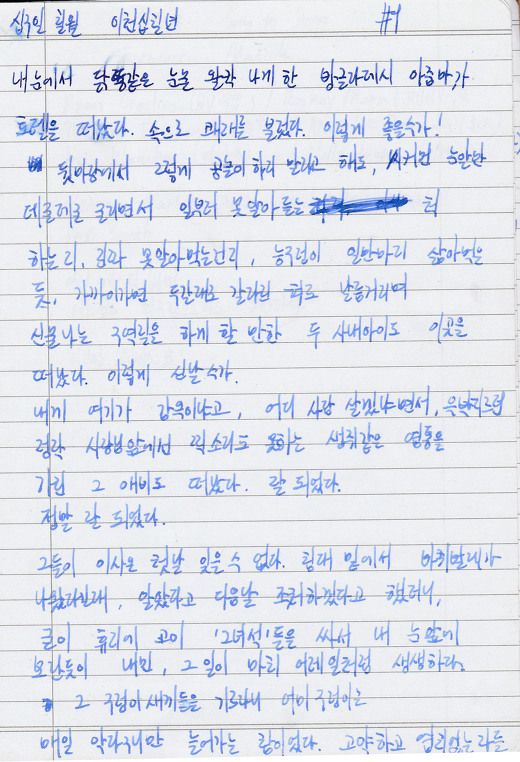 십구일 칠월 이천십칠년 #1
내 눈에서 닭똥같은 눈물 왈칵 나게 한 방글라데시 아줌마가
모텔을 떠났다. 속으로 쾌재를 불렀다. 이렇게 좋을수가!
뒷마당에서 그렇게 공놀이 하지 말라고 해도, 시커먼 눈알만
데룩데룩 굴리면서 일부러 못알아듣는 척
하는지, 진짜 못알아먹는건지, 능구렁이 일만마리 삶아먹은
듯, 가까이가면 두갈래로 갈라진 혀로 날름거리며
신물나는 구역질을 하게 할 만한 두 사내아이도 이곳을
떠났다. 이렇게 신날 수가.
내게 여기가 감옥이냐고, 어디 사람 살겠냐면서, 윽박지르던
정작 사람들앞에선 찍소리도 못하는 생쥐같은 몸통을
가진 그 애비도 떠났다. 잘 되었다.
정말 잘 되었다.
그들이 이사온 첫날 잊을 수 없다. 침대 밑에서 바퀴벌레가
나왔다길래, 알았다고 다음날 조치하겠다고 했더니,
굳이 휴지에 고이 '그녀석'들을 싸서 내 눈앞에
보란듯이 내민, 그 일이 마치 어제일처럼 생생하다.
그 구렁이새끼들을 기르자니 어미 구렁이는
매일 악다구니만 늘어가는 참이었다. 고약하고 염치없는 자들